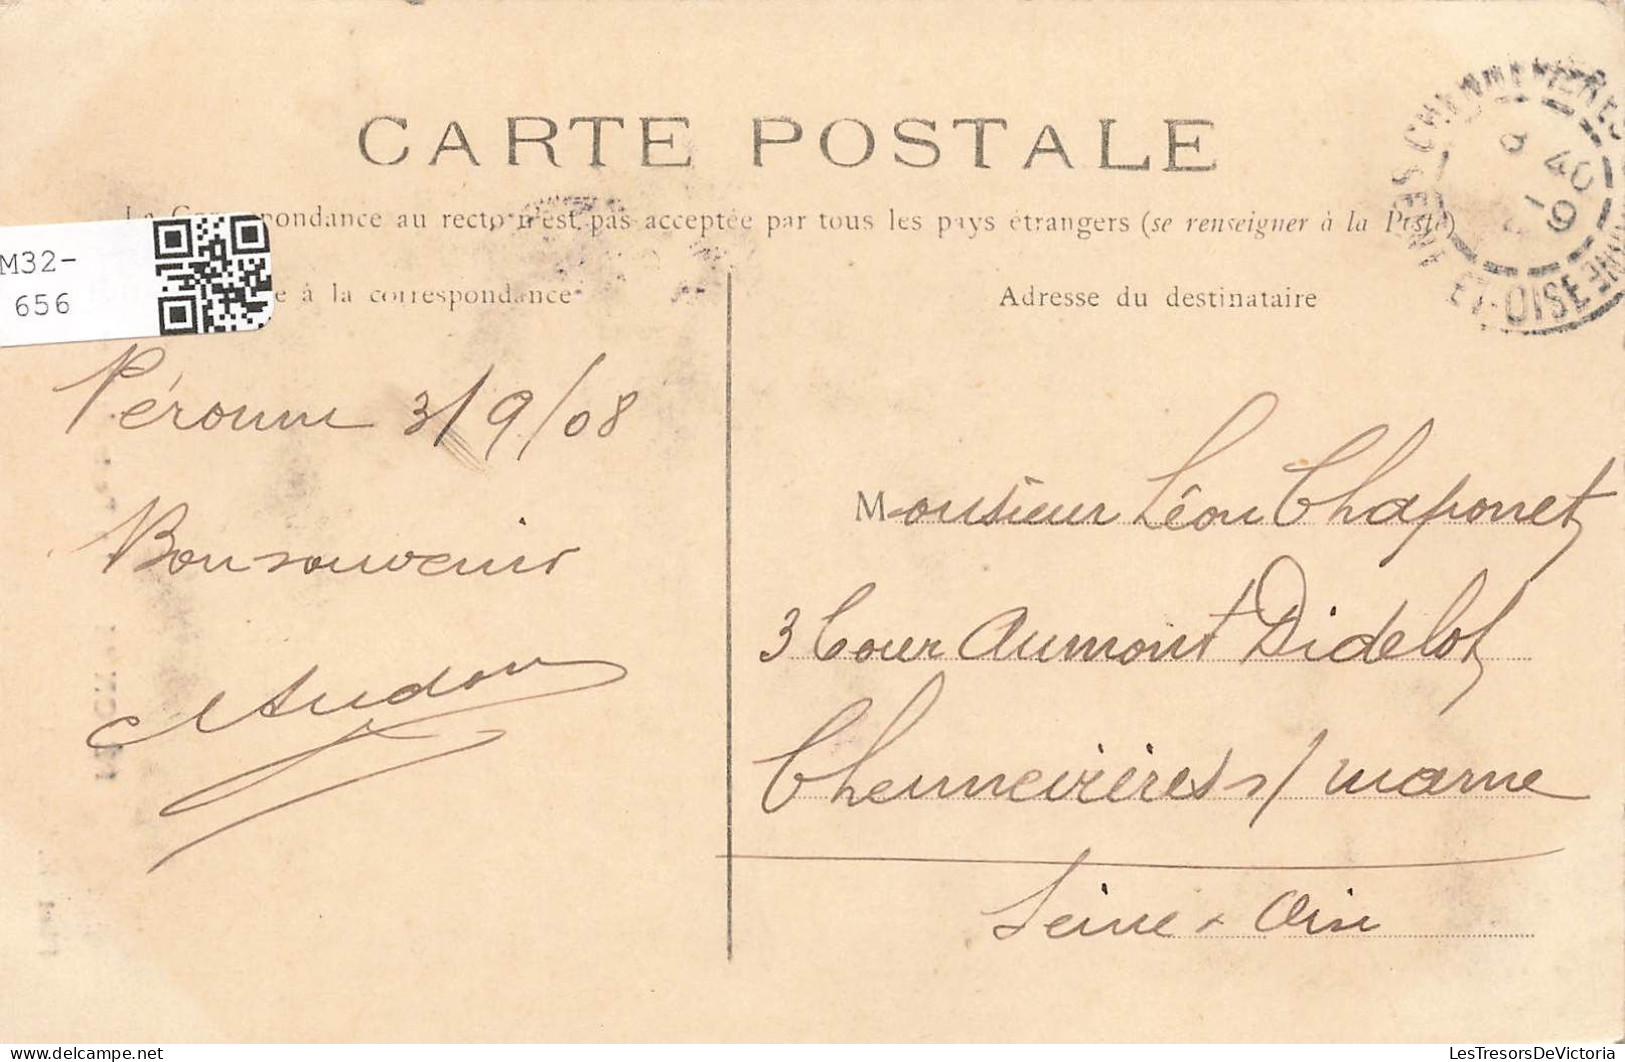 CARTE POSTALE
La Correspondance au recto n'est pas acceptée par tous les pays étrangers (se renseigner à la Poste)
M32-
656
e à la correspondance
Adresse du destinataire
CHENNEVIERES
8 40
-9
ET-OISE
Péronne 3/9/08
Bon souvenir
Monsieur Léon Chaponet
3 Cour Aumont Didelot
Chennevières s/ marne
Seine & Oise
LesTresorsDeVictoria
delcampe.net